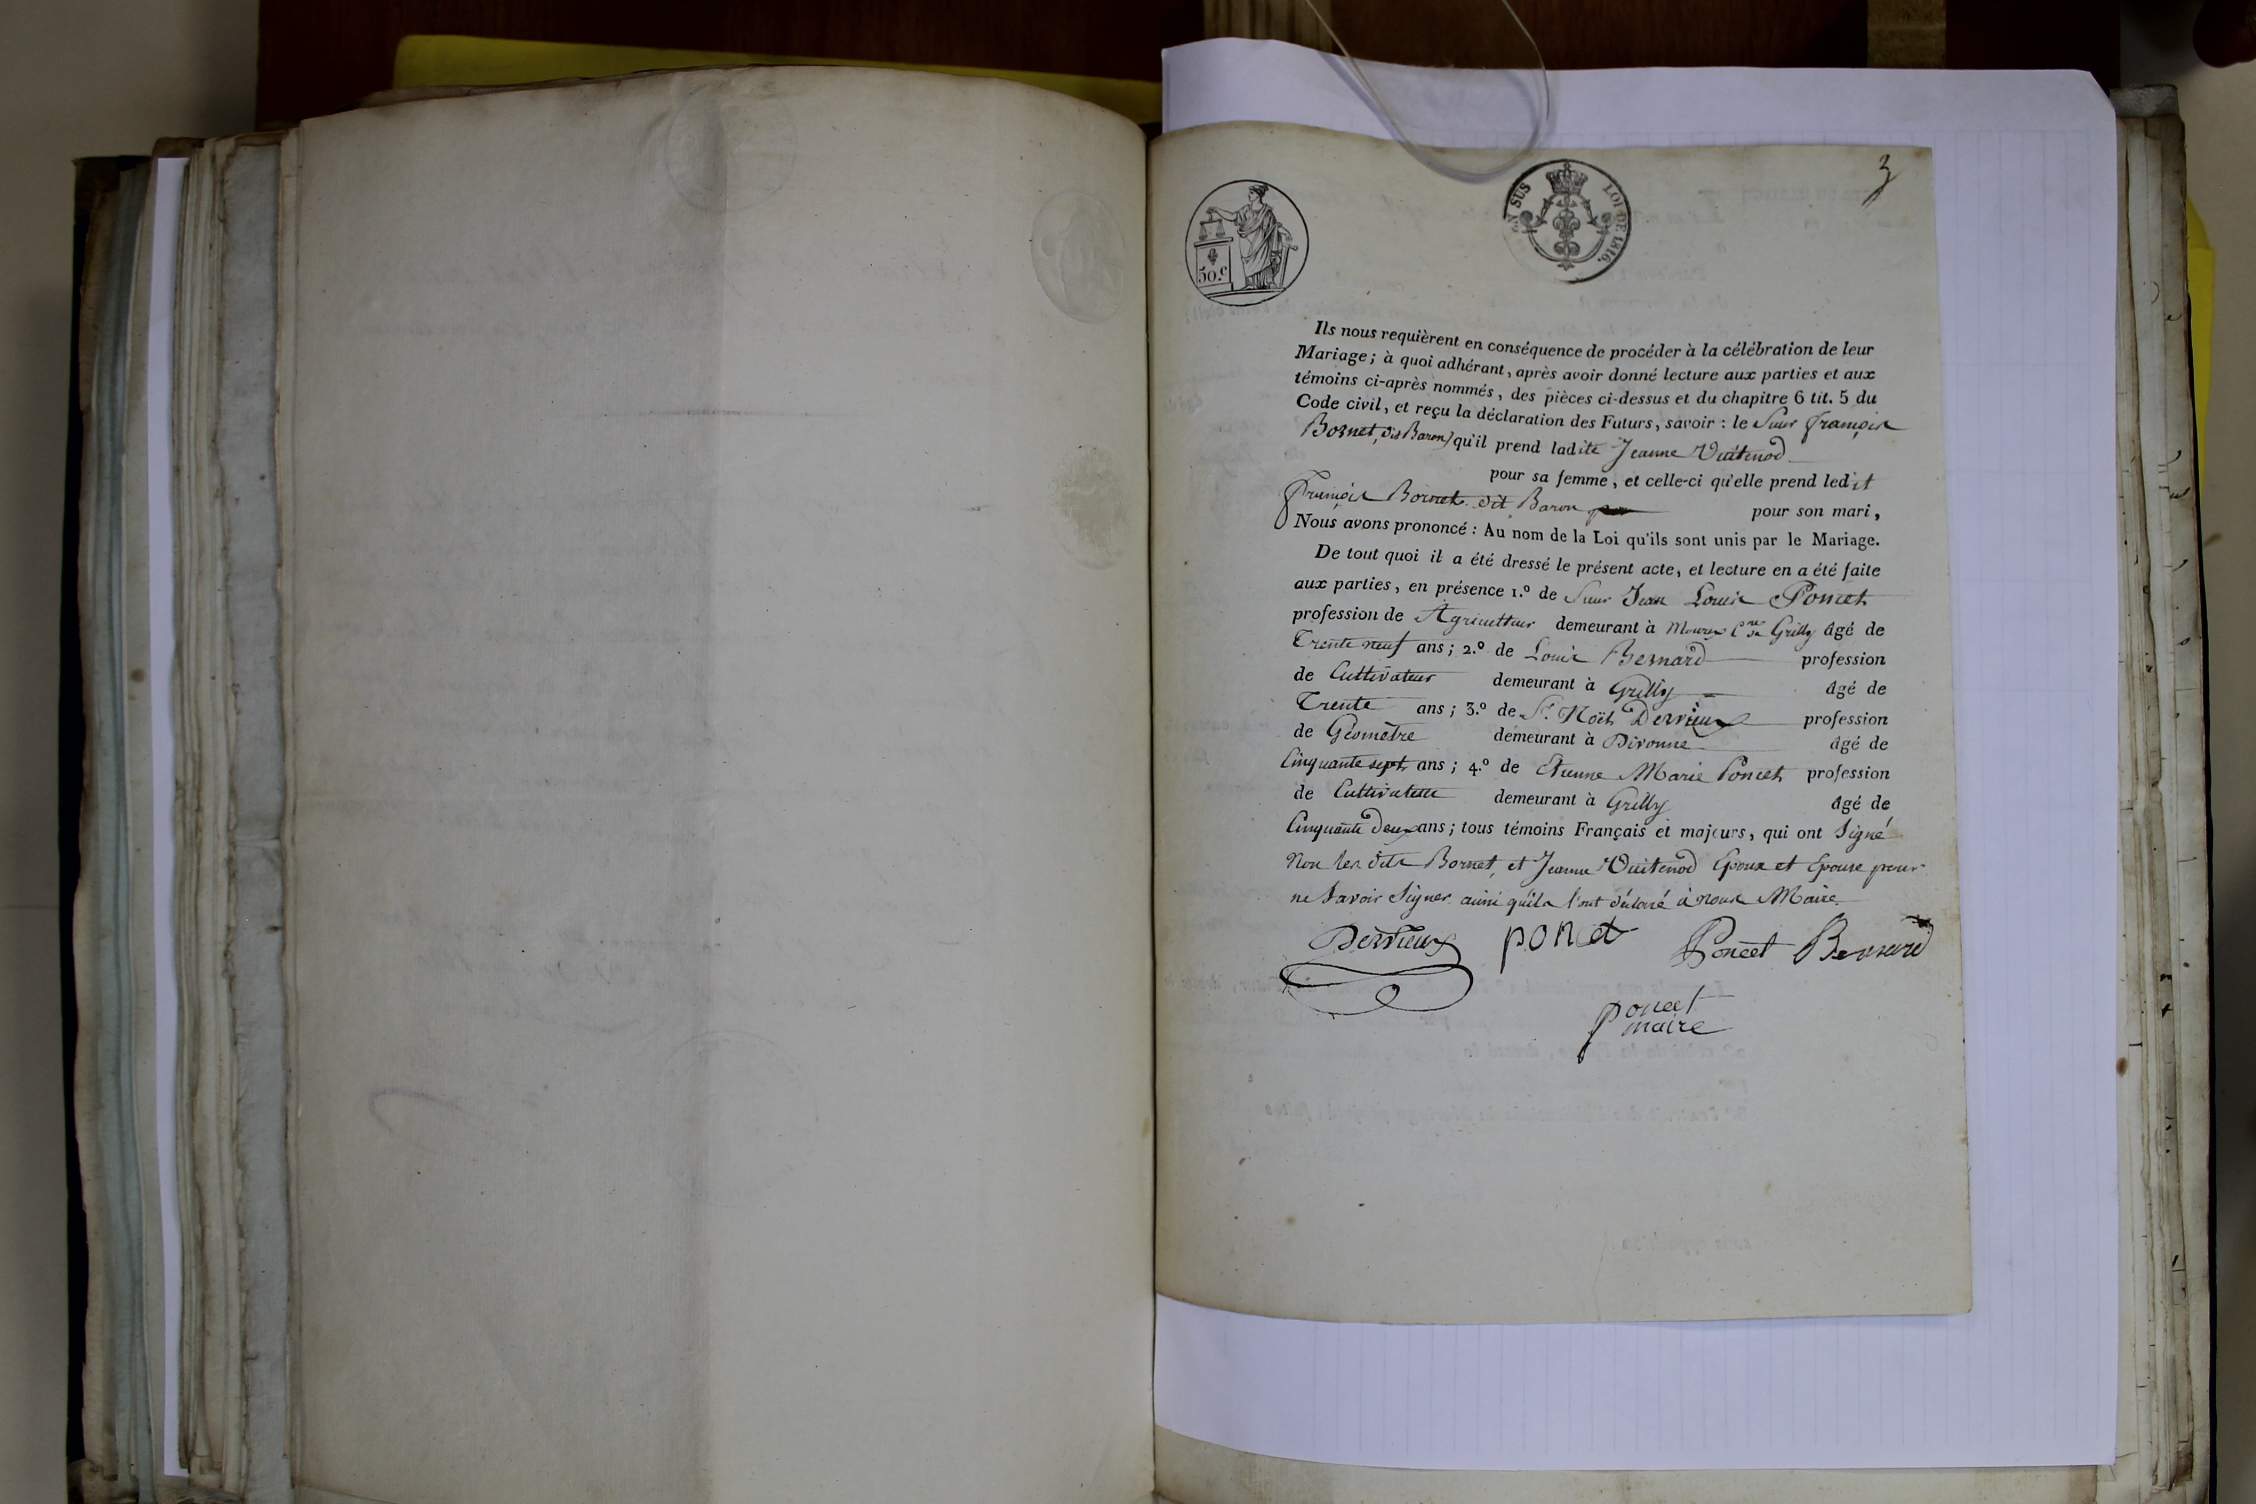 3
50.c
EN SUS LOI DE 1816.
Ils nous requièrent en conséquence de procéder à la célébration de leur
Mariage; à quoi adhérant, après avoir donné lecture aux parties et aux
témoins ci-après nommés, des pièces ci-dessus et du chapitre 6 tit. 5 du
Code civil, et reçu la déclaration des Futurs, savoir : le Sieur françois
Bornet, dit Baron) qu'il prend ladite Jeanne Vuitenod
pour sa femme, et celle-ci qu'elle prend ledit
françois Bornet dit Baron
pour son mari,
Nous avons prononcé : Au nom de la Loi qu'ils sont unis par le Mariage.
De tout quoi il a été dressé le présent acte, et lecture en a été faite
aux parties, en présence 1.º de Sieur Jean Louis Poncet
profession de Agriculteur demeurant à Mourex Cne de Grilly âgé de
Trente neuf ans; 2.º de Louis Bernard profession
de Cultivateur demeurant à Grilly âgé de
Trente ans; 3.º de Sr. Noël Derrieux profession
de Géomètre demeurant à Divonne âgé de
Cinquante sept ans; 4.º de Etienne Marie Poncet profession
de Cultivateur demeurant à Grilly âgé de
Cinquante Deux ans; tous témoins Français et majeurs, qui ont Signé
Non les dits Bornet, et Jeanne Vuitenod Epoux et Epouse pour
ne Savoir Signer ainsi qu'ils l'ont déclaré à nous Maire.
Derrieux poncet Poncet Bernard
poncet
maire